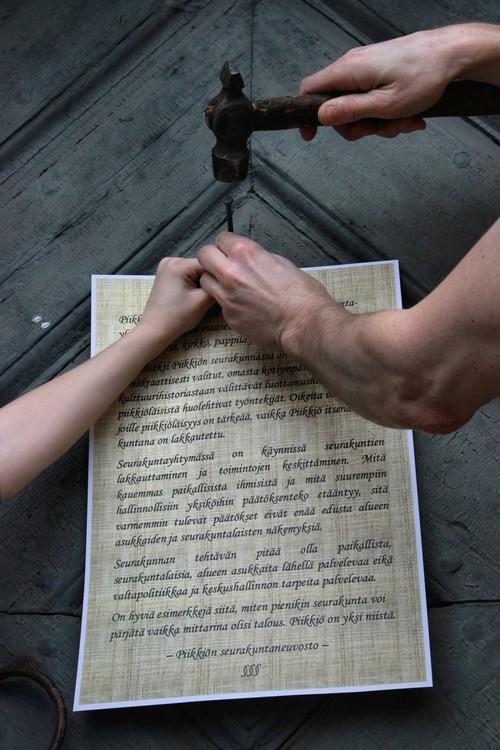 nta-
kirkko, pappila
Piikkiön seurakunnassa on
valitut, omasta
kulttuurihistoriastaan välittävät
piikkiöläisistä huolehtivat työntekijät. Oikeita
joille piikkiöläisyys on tärkeää, vaikka Piikkiö
kuntana on lakkautettu.
Seurakuntayhtymässä on käynnissä seurakuntien
lakkauttaminen ja toimintojen keskittäminen. Mitä
kauemmas paikallisista ihmisistä ja mitä suurempiin
hallinnollisiin yksiköihin päätöksenteko etääntyy, sitä
varmemmin tulevat päätökset eivät enää edusta alueen
asukkaiden ja seurakuntalaisten näkemyksiä.
Seurakunnan tehtävän pitää olla paikallista,
seurakuntalaisia, alueen asukkaita lähellä palvelevaa eikä
valtapolitiikkaa ja keskushallinnon tarpeita palvelevaa.
On hyviä esimerkkejä siitä, miten pienikin seurakunta voi
pärjätä vaikka mittarina olisi talous. Piikkiö on yksi niistä.
– Piikkiön seurakuntaneuvosto –
§§§